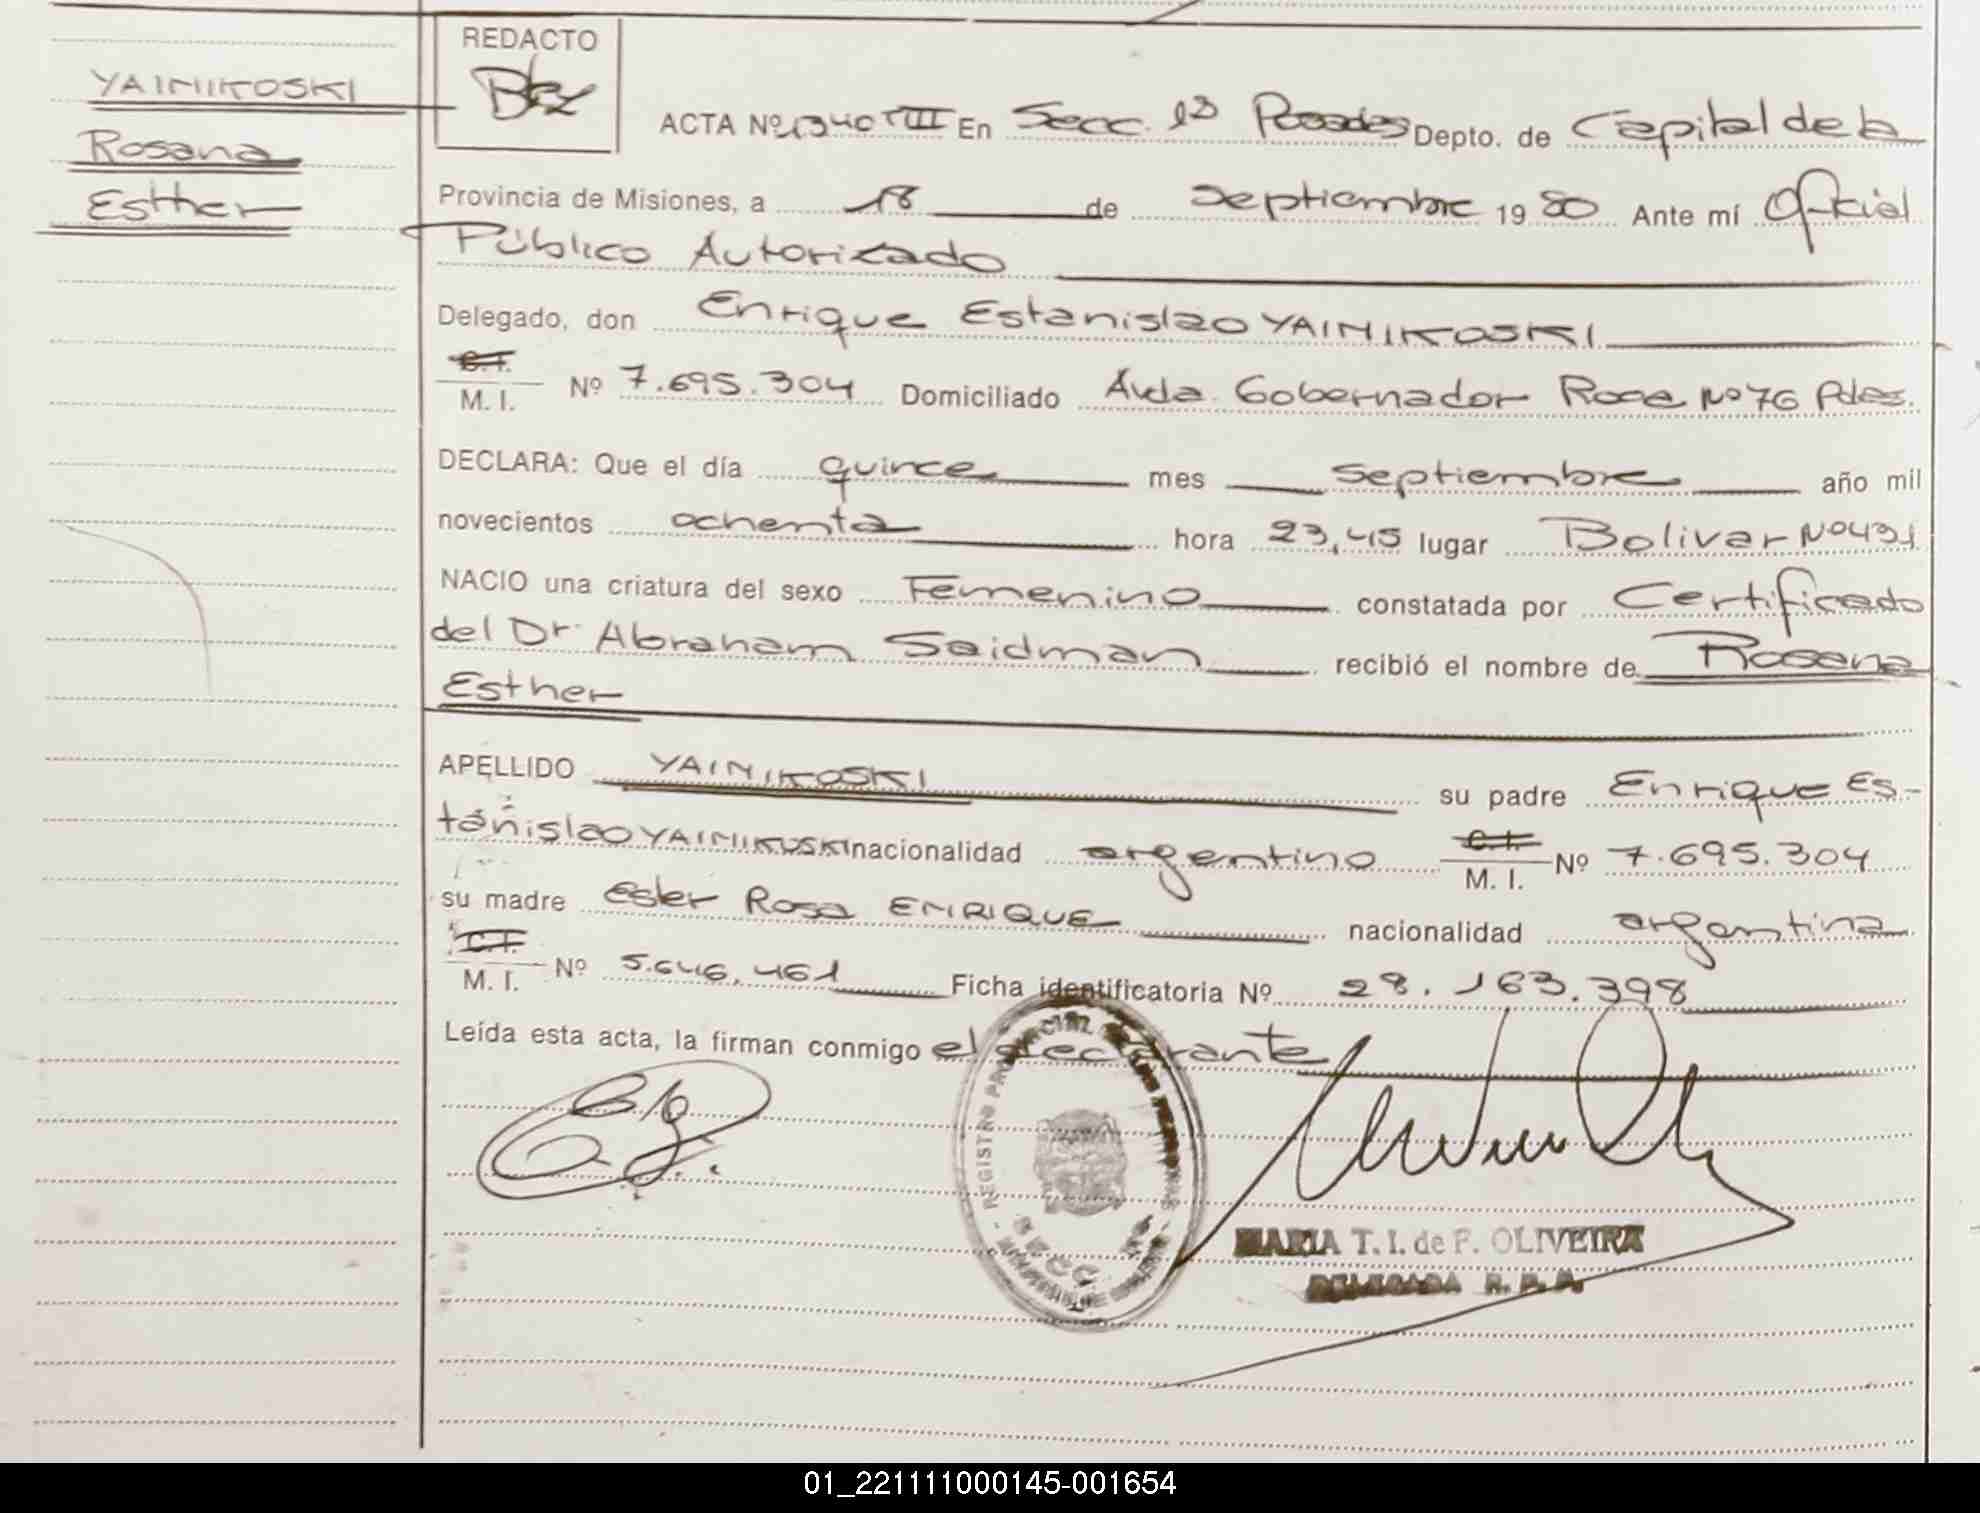 REDACTO
YAINIKOSKI
Rosana
Esther
ACTA Nº 1340 TIII En Secc. 1ª Posadas Depto. de Capital de la
Provincia de Misiones, a 18 de Septiembre 19 80 Ante mí Oficial
Público Autorizado
Delegado, don Enrique Estanislao YAINIKOSKI
C.I. M. I. Nº 7.695.304 Domiciliado Avda. Gobernador Roca Nº 76 Pdas.
DECLARA: Que el día quince mes septiembre año mil
novecientos ochenta hora 23,45 lugar Bolivar Nº 431
NACIO una criatura del sexo Femenino constatada por Certificado
del Dr. Abraham Saidman recibió el nombre de Rosana
Esther
APELLIDO YAINIKOSKI su padre Enrique Es-
tanislao YAINIKOSKI nacionalidad argentino C.I. M. I. Nº 7.695.304
su madre Ester Rosa ENRIQUE nacionalidad argentina
C.I. M. I. Nº 5.646.461 Ficha identificatoria Nº 28.163.398
Leída esta acta, la firman conmigo el declarante
REGISTRO PROVINCIAL DE LAS PERSONAS
SECC.
MARIA T. I. de F. OLIVEIRA
DELEGADA R. P. P.
01_221111000145-001654